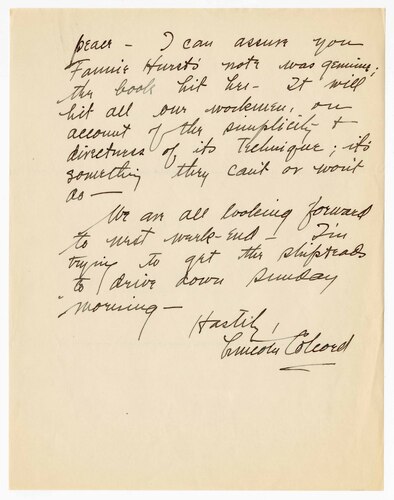 peace — I can assure you
Fannie Hurst's note was genuine;
the book hit her — It will
hit all our workmen, on
account of the simplicity &
directness of its technique; it's
something they can't or won't
do —
We are all looking forward
to next week-end — I'm
trying to get the Shipsteads
to drive down Sunday
morning —
Hastily,
Lincoln Colcord